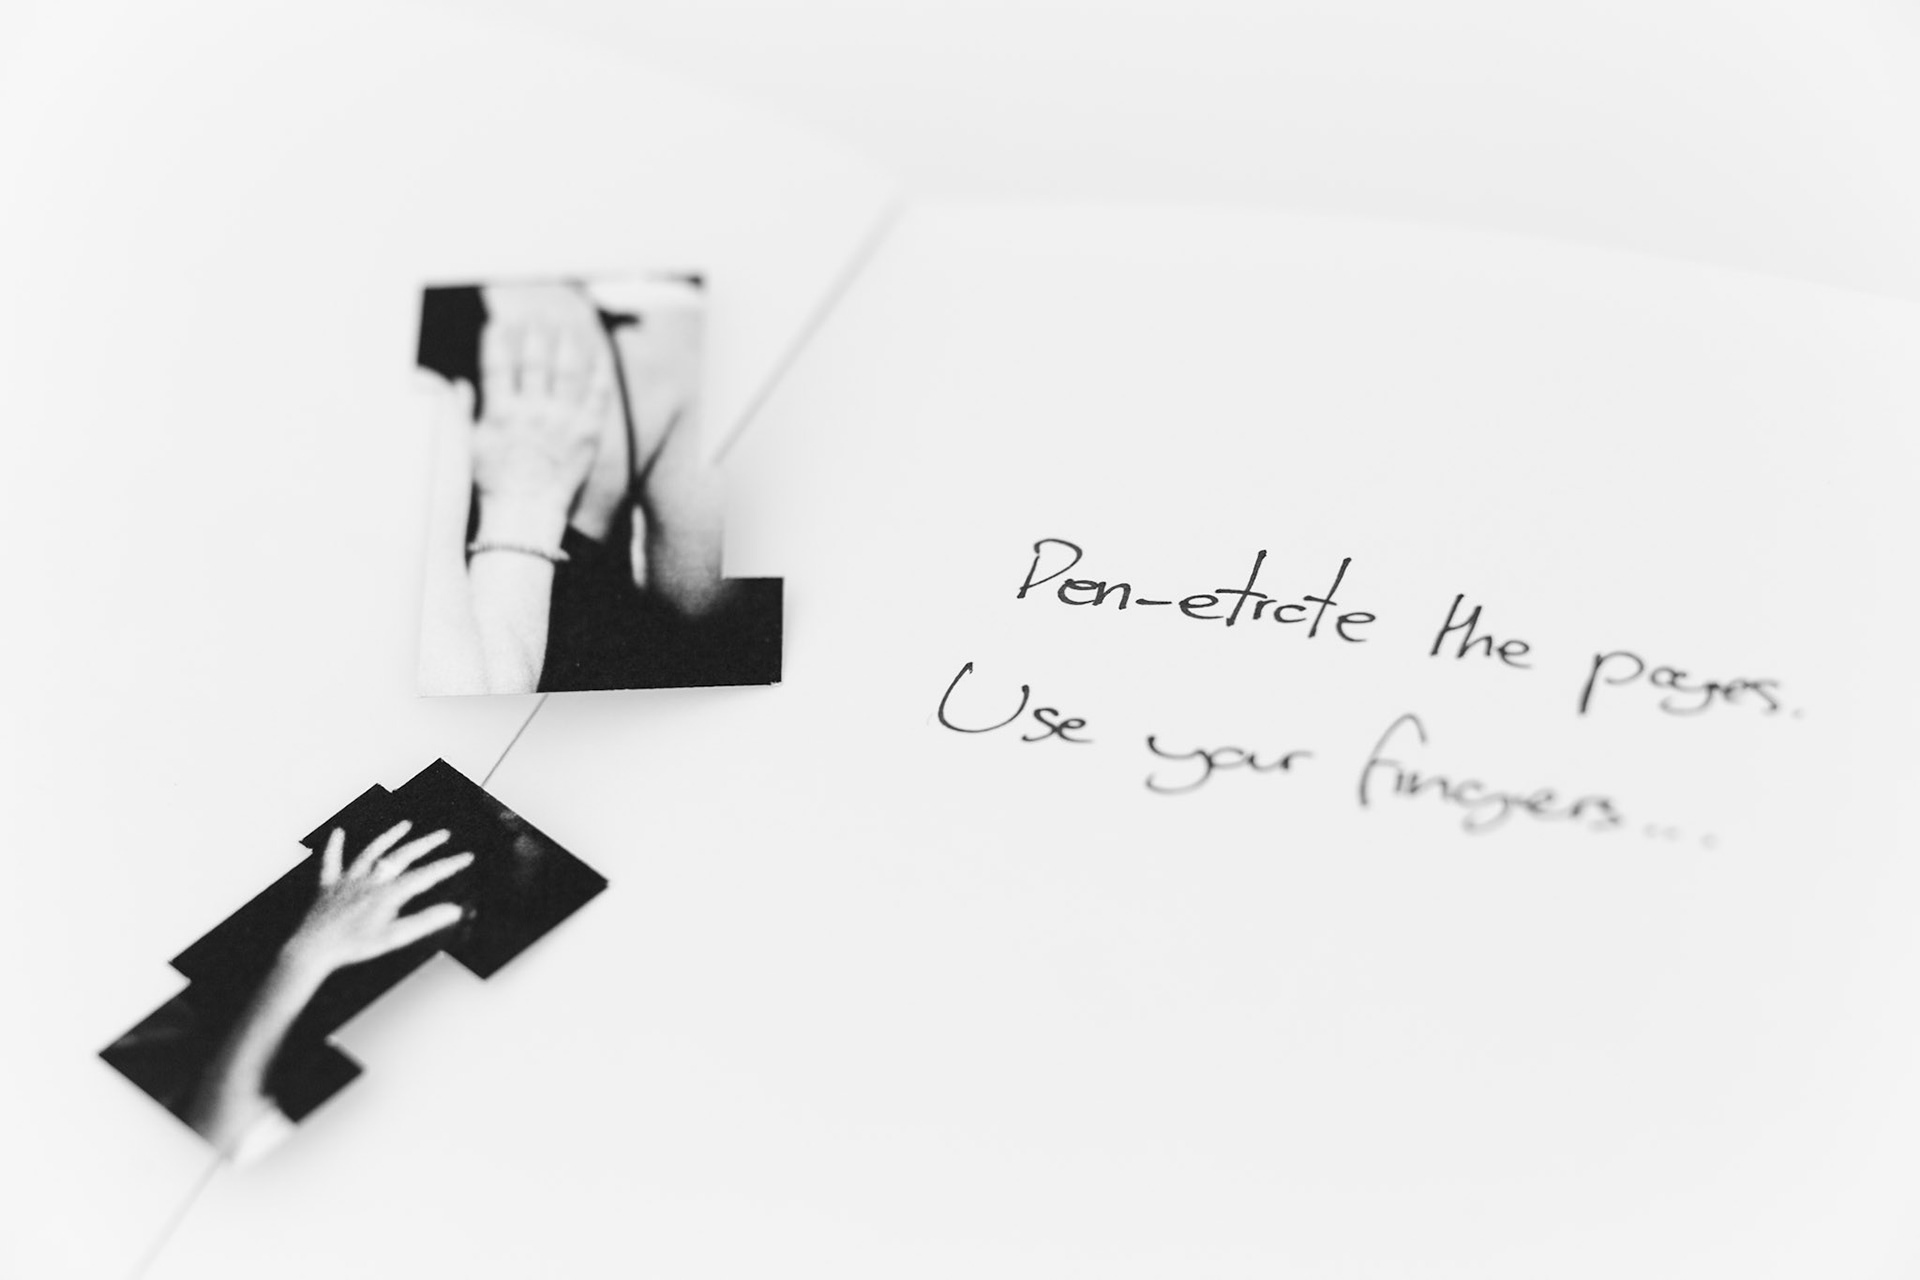 Pen-etrate the pages.
Use your fingers...